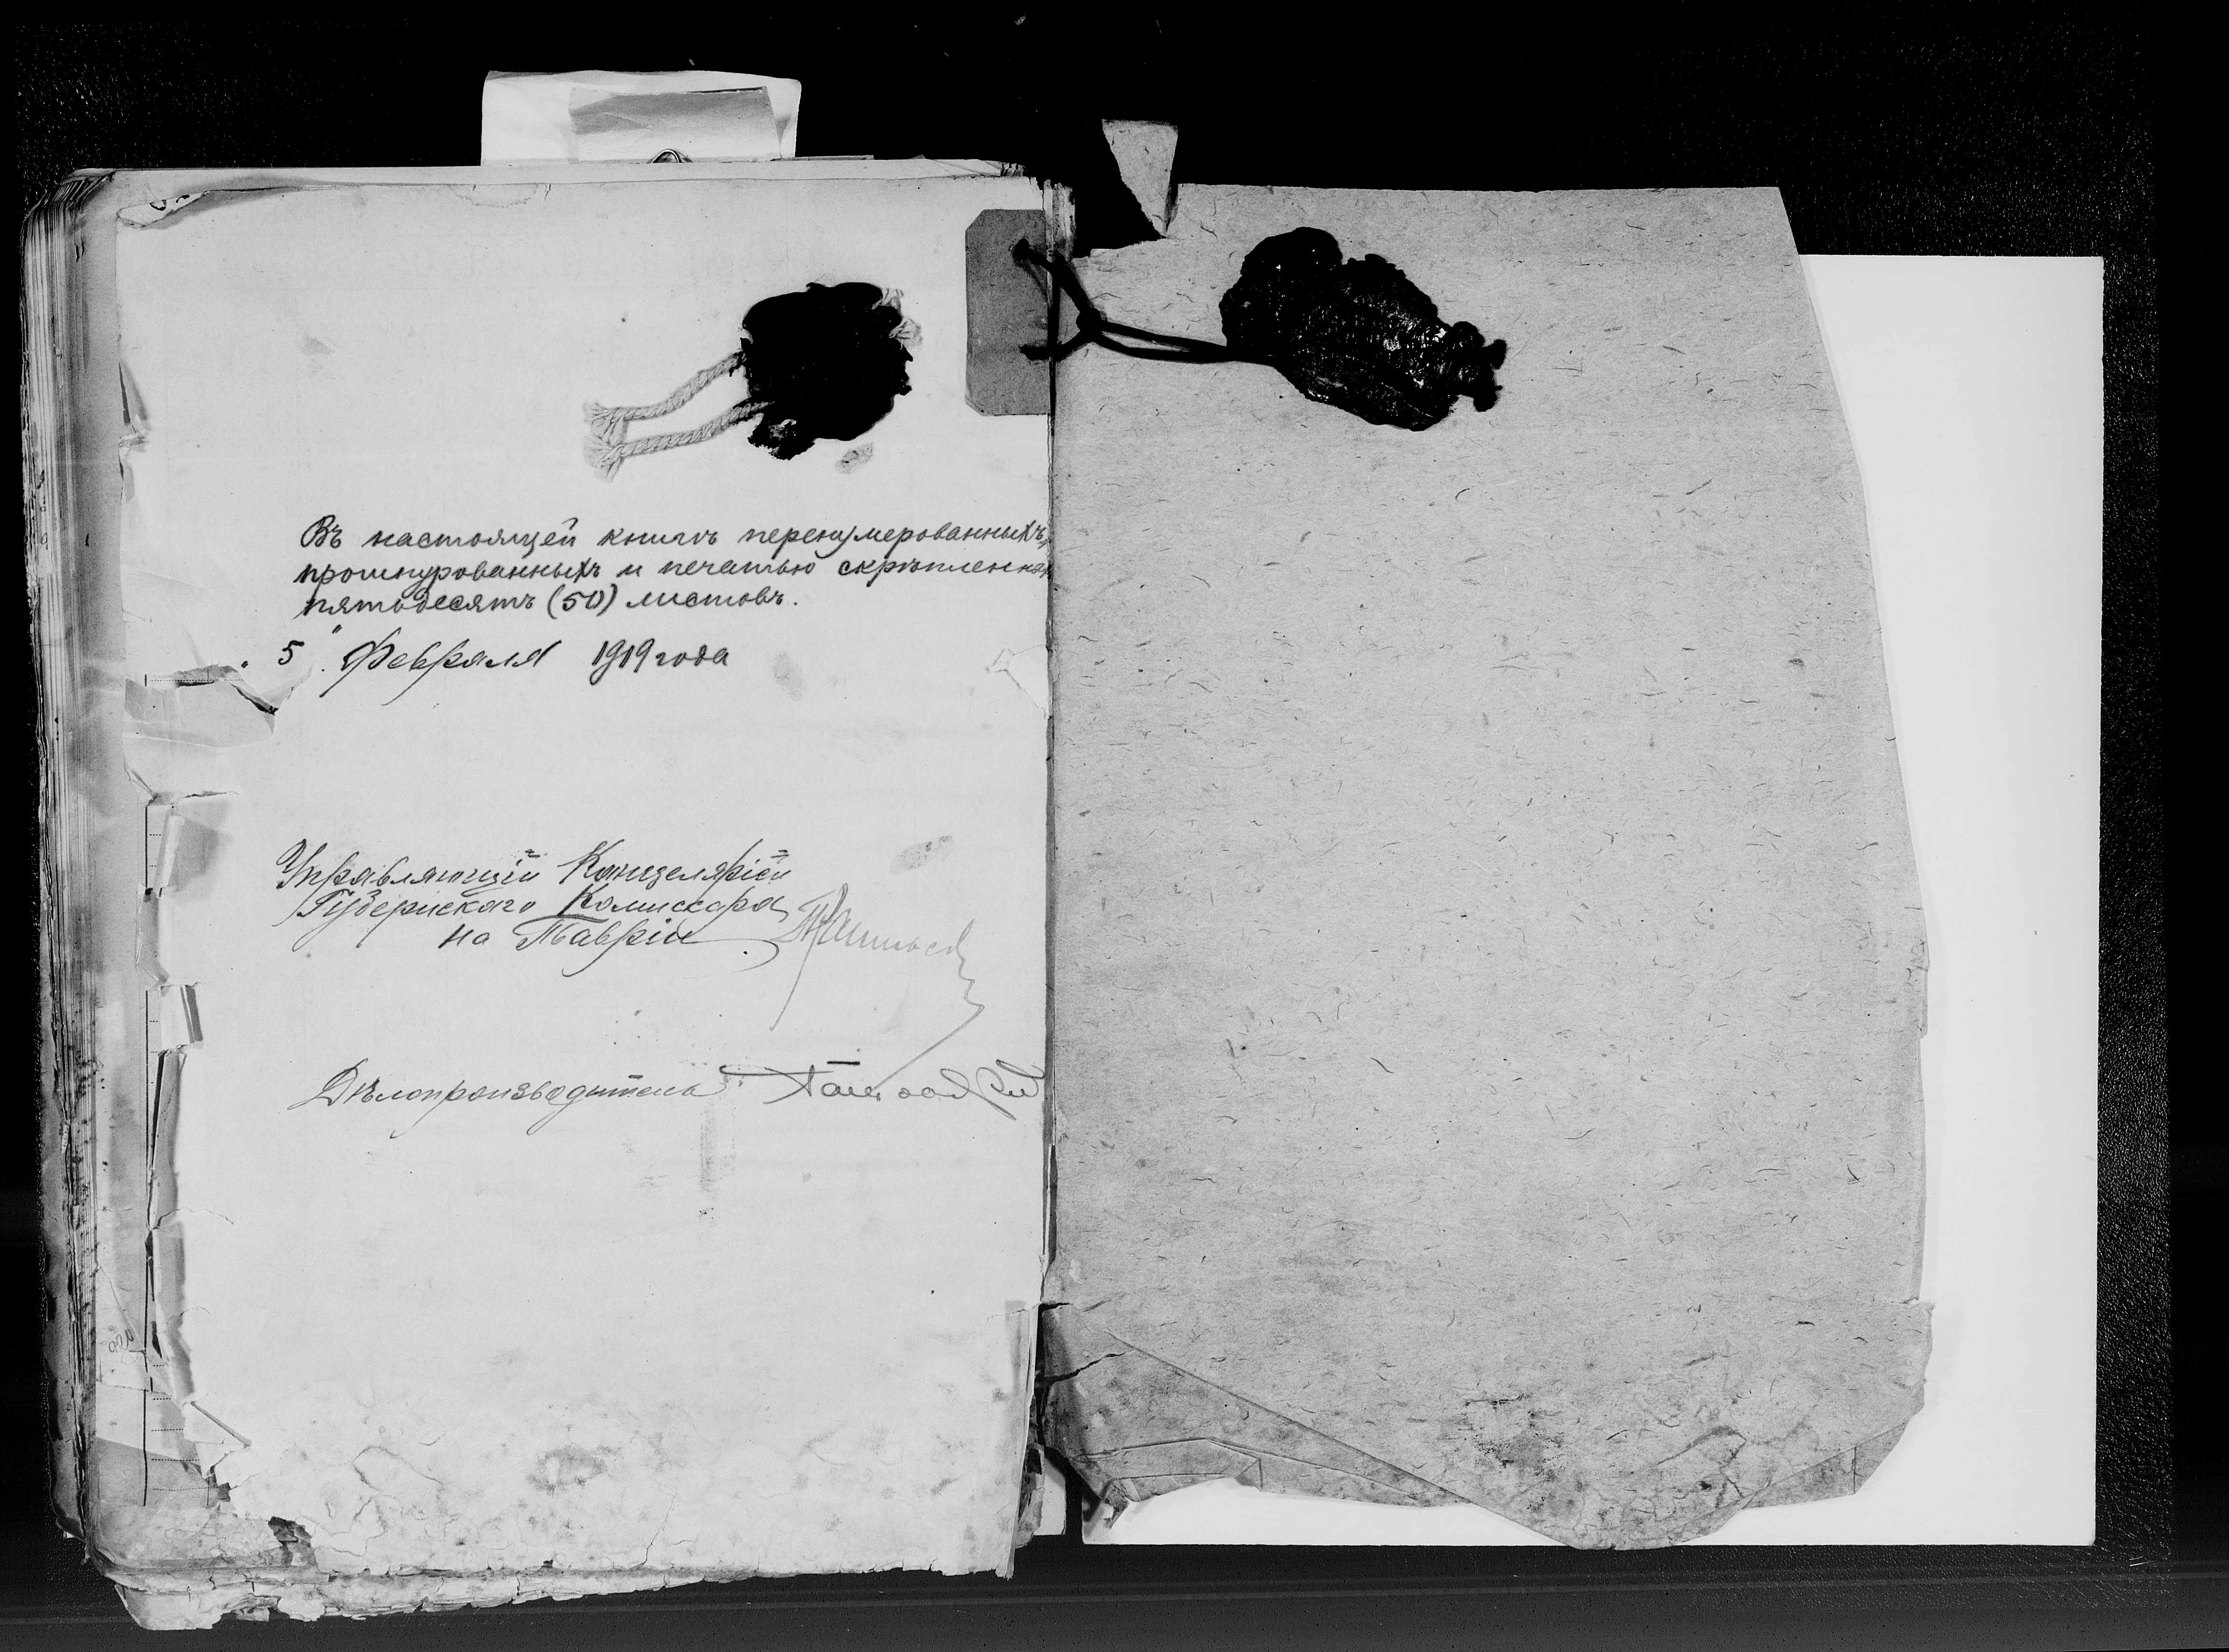 Въ настоящей книгѣ перенумерованныхъ,
прошнурованныхъ и печатью скрѣпленных
пятьдесятъ (50) листовъ.
„ 5 " Февраля 1919 года
Управляющій Канцеляріей
Губернскаго Комиссара
на Тавріи
Дѣлопроизводитель